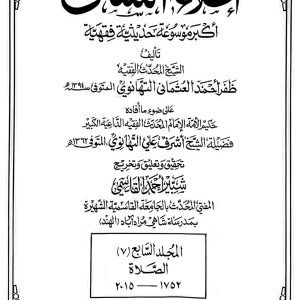 إعلاء السنن
أكبر موسوعة حديثية فقهية
تأليف
الشيخ المحدث الفقيه
ظفر أحمد العثماني التهانوي (المتوفى سنة ١٣٩٤هـ)
على ضوء ما أفاده
حكيم الأمة الإمام المحدث الفقيه الداعية الكبير
فضيلة الشيخ أشرف علي التهانوي المتوفى ١٣٦٢هـ
تحقيق وتعليق وتخريج
شبير أحمد القاسمي
المفتي المحدث بالجامعة القاسمية الشهيرة
بمدرسة شاهي مرادآباد (الهند)
المجلد السابع (٧)
الصلاة
١٧٥٢ — ٢٠١٥